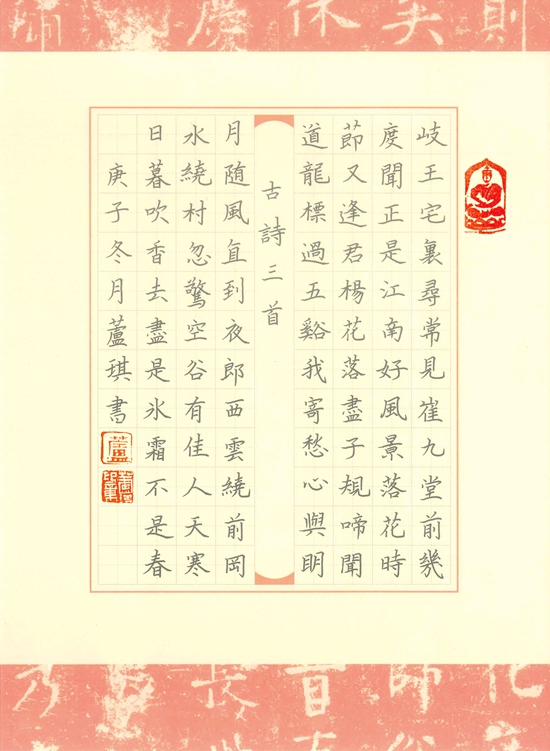 岐王宅裏尋常見崔九堂前幾
度聞正是江南好風景落花時
莭又逢君楊花落盡子䂓啼聞
道龍標過五谿我寄愁心與眀
古詩三首
月随風直到夜郎西雲繞前岡
水繞村忽驚空谷有佳人天寒
日暮吹香去盡是氷霜不是春
庚子冬月蘆琪書
蘆